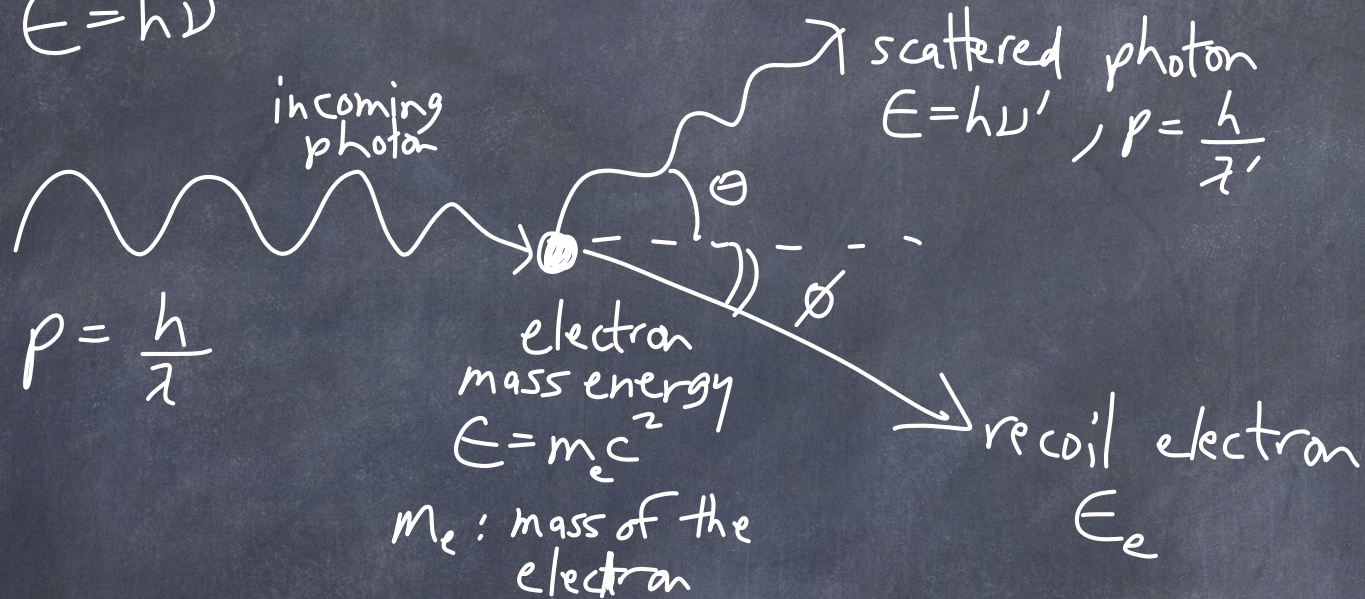 E = hν
incoming
photon
scattered photon
E = hν' , p = h/λ'
θ
ϕ
p = h/λ
electron
mass energy
E = mₑc²
mₑ : mass of the
electron
recoil electron
Eₑ